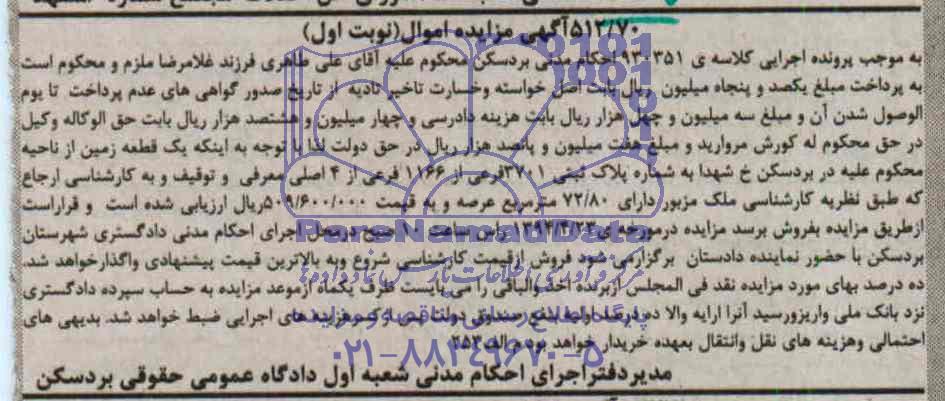 ۵۱۲/۷۰آگهی مزایده اموال(نوبت اول)
به موجب پرونده اجرایی کلاسه ی ۹۳۰۳۵۱ احکام مدنی بردسکن محکوم علیه آقای علی طاهری فرزند غلامرضا ملزم و محکوم است
به پرداخت مبلغ یکصد و پنجاه میلیون ریال بابت اصل خواسته وخسارت تاخیر تادیه از تاریخ صدور گواهی های عدم پرداخت تا یوم
الوصول شدن آن و مبلغ سه میلیون و چهل هزار ریال بابت هزینه دادرسی و چهار میلیون و هشتصد هزار ریال بابت حق الوکاله وکیل
در حق محکوم له کورش مروارید و مبلغ هفت میلیون و پانصد هزار ریال در حق دولت لذا با توجه به اینکه یک قطعه زمین از ناحیه
محکوم علیه در بردسکن خ شهدا به شماره پلاک ثبتی ۳۷۰۱فرعی از ۱۱۶۶ فرعی از ۴ اصلی معرفی و توقیف و به کارشناسی ارجاع
که طبق نظریه کارشناسی ملک مزبور دارای ۷۲/۸۰ مترمربع عرصه و به قیمت ۵۰۹/۶۰۰/۰۰۰ریال ارزیابی شده است و قراراست
ازطریق مزایده بفروش برسد مزایده درمورخه ی۱۳۹۴/۴/۲۳ راس ساعت ۱۰ صبح درمحل اجرای احکام مدنی دادگستری شهرستان
بردسکن با حضور نماینده دادستان برگزارمی شود فروش ازقیمت کارشناسی شروع وبه بالاترین قیمت پیشنهادی واگذارخواهد شد.
ده درصد بهای مورد مزایده نقد فی المجلس ازبرنده اخذ والباقی را می بایست ظرف یکماه ازموعد مزایده به حساب سپرده دادگستری
نزد بانک ملی واریزورسید آنرا ارایه والا ده درصد اولیه بنفع صندوق دولت پس ازکسرهزینه های اجرایی ضبط خواهد شد. بدیهی های
احتمالی وهزینه های نقل وانتقال بعهده خریدار خواهد بود.م الف۲۵۳
مدیردفتراجرای احکام مدنی شعبه اول دادگاه عمومی حقوقی بردسکن
ParsNamadData
مرکز فرآوری اطلاعات پارس نماد داده ها
پایگاه اطلاع رسانی مناقصه و مزایده
۰۲۱-۸۸۳۴۹۶۷۰-۵